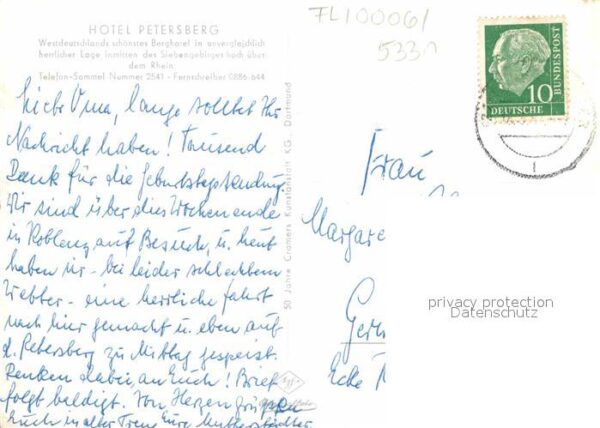 HOTEL PETERSBERG
Westdeutschlands schönstes Berghotel in unvergleichlich
herrlicher Lage inmitten des Siebengebirges hoch über
dem Rhein
Telefon-Sammel-Nummer 2541 - Fernschreiber 0886-644
FL100061
533
10
DEUTSCHE
BUNDESPOST
liebe Oma, lange solltet Ihr
Nachricht haben! Tausend
Dank für die Geburtstagssendung
Wir sind über dies Wochenende
in Koblenz auf Besuch, u. heut
haben wir - bei leider schlechtem
Wetter - eine herrliche Fahrt
nach hier gemacht u. eben auf
d. Petersberg zu Mittag gespeist.
Denken dabei an Euch! Brief
folgt baldigst. Von Herzen grüßen
Euch in alter Treue Eure
50 Jahre Cramers Kunstanstalt KG. Dortmund
Frau
Margare
Ger
Ecke
privacy protection
Datenschutz